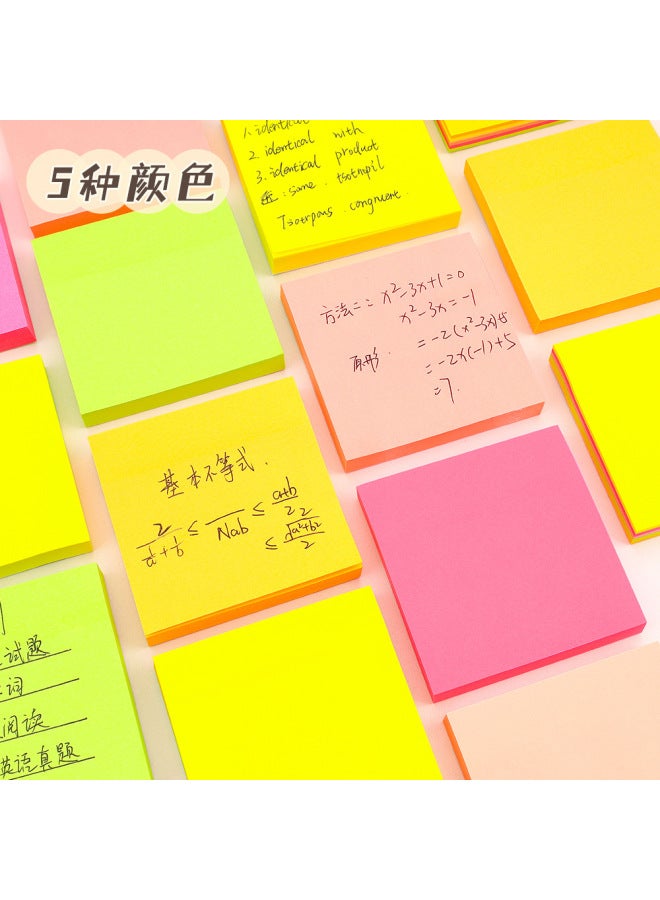 5种颜色
1. identical
2. identical with
3. identical product
same.
congruent.
方法二: x²-3x+1=0
x²-3x=-1
原形. =-2(x²-3x)+5
=-2×(-1)+5
=7.
基本不等式.
2/(1/a+1/b) ≤ ‾Nab ≤ (a+b)/2
≤ √a²+b²/2
试题
词
阅读
英语真题